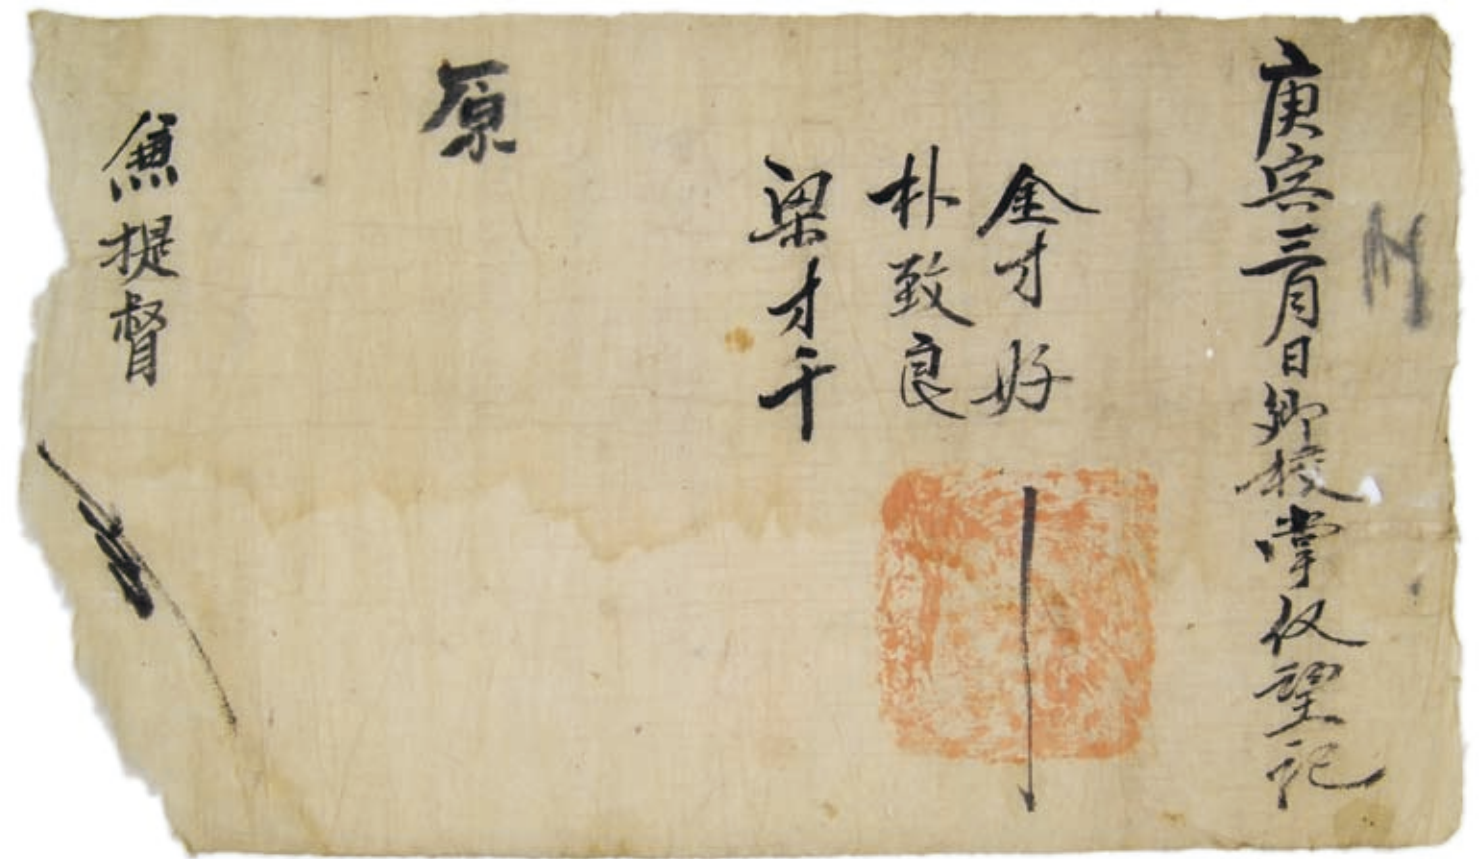 庚寅三月日鄕校掌仪望記
金才好
朴致良
梁才千
原
兼提督